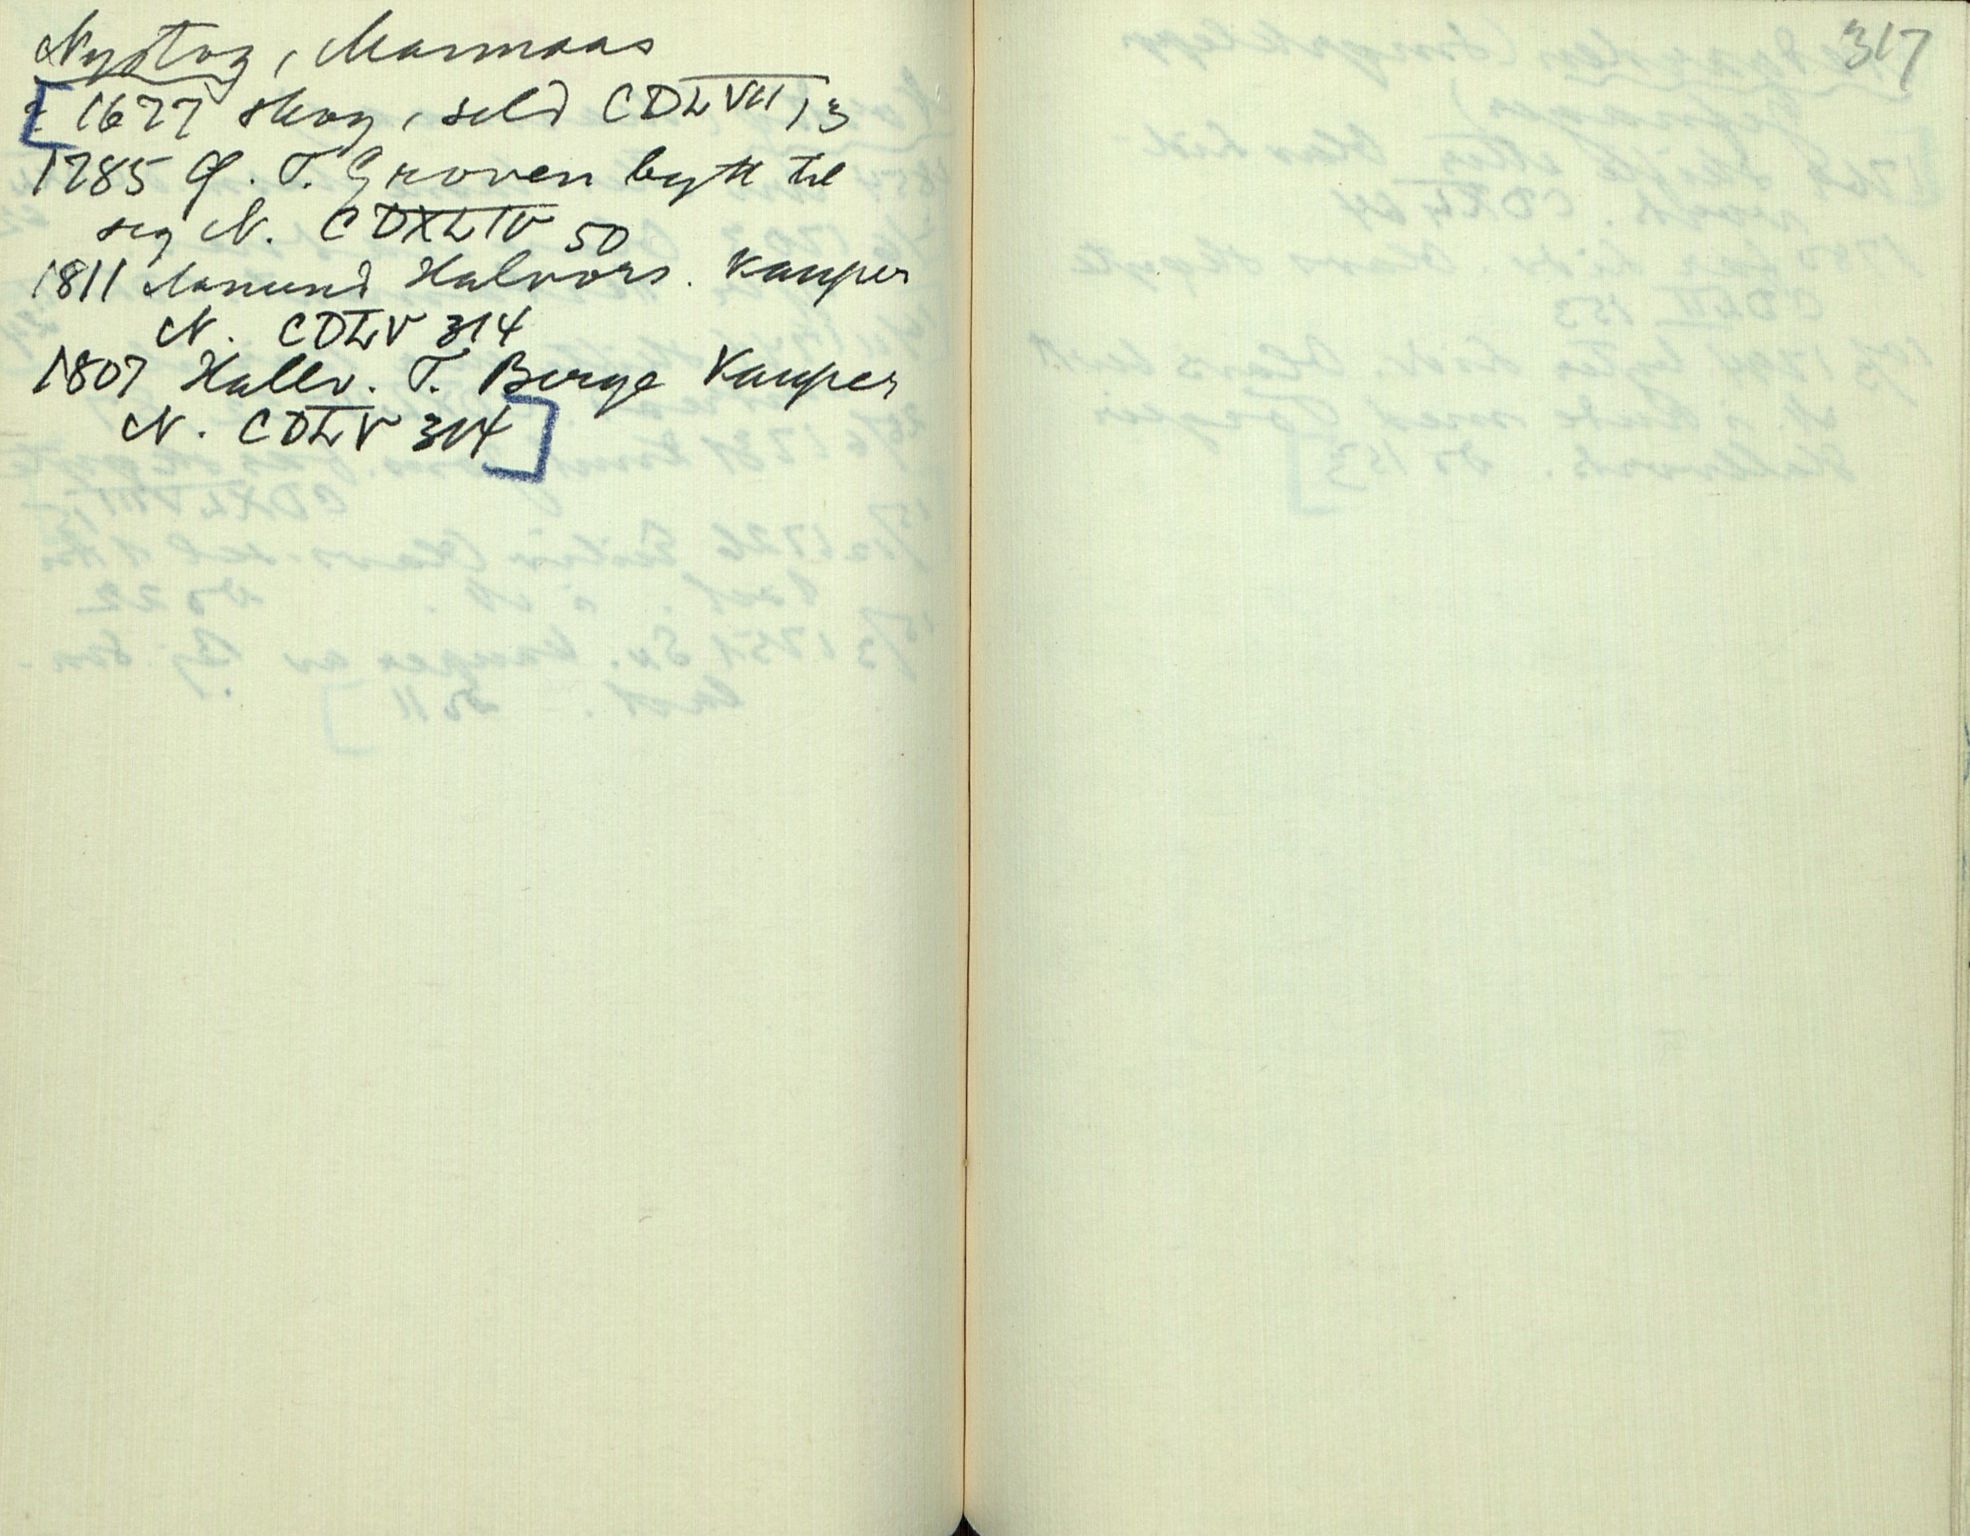 Nystog, Marmaas
1677 skog, seld CDLVIII, 3
1785 Ø. T. Groven bytt til
seg N. CDXLIV 50
1811 Aamund Halvors. kauper
N. CDLV 314
1807 Hallv. T. Berge kauper
N. CDLV 314
317